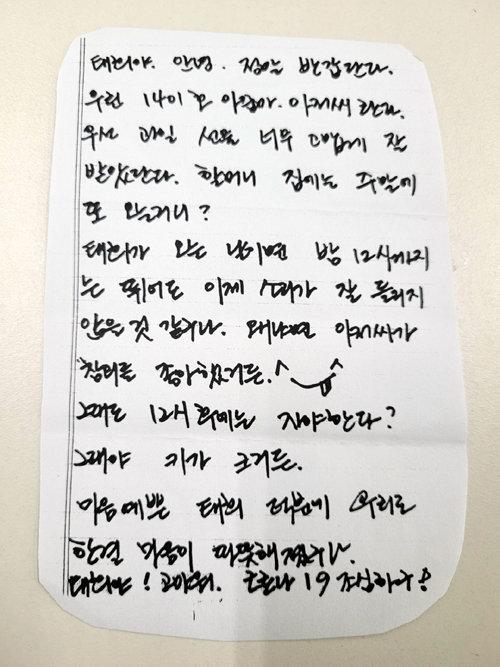 태희야. 안녕. 정말 반갑단다.
우린 14이호 아줌마. 아저씨란다.
우선 과일 선물 너무 고맙게 잘
받았단다. 할머니 집에는 주말에
또 오는거니?
태희가 오는 날이면 밤 12시까지
는 뛰어도 이제 소리가 잘 들리지
않을것 같구나. 왜냐면 아저씨가
창틀을 좋아했거든.^‿^
그래도 12시 후에는 자야한다?
그래야 키가 크거든.
마음 예쁜 태희 덕분에 우리도
한결 마음이 따뜻해졌구나.
태희야! 고마워. 코로나 19 조심하구!